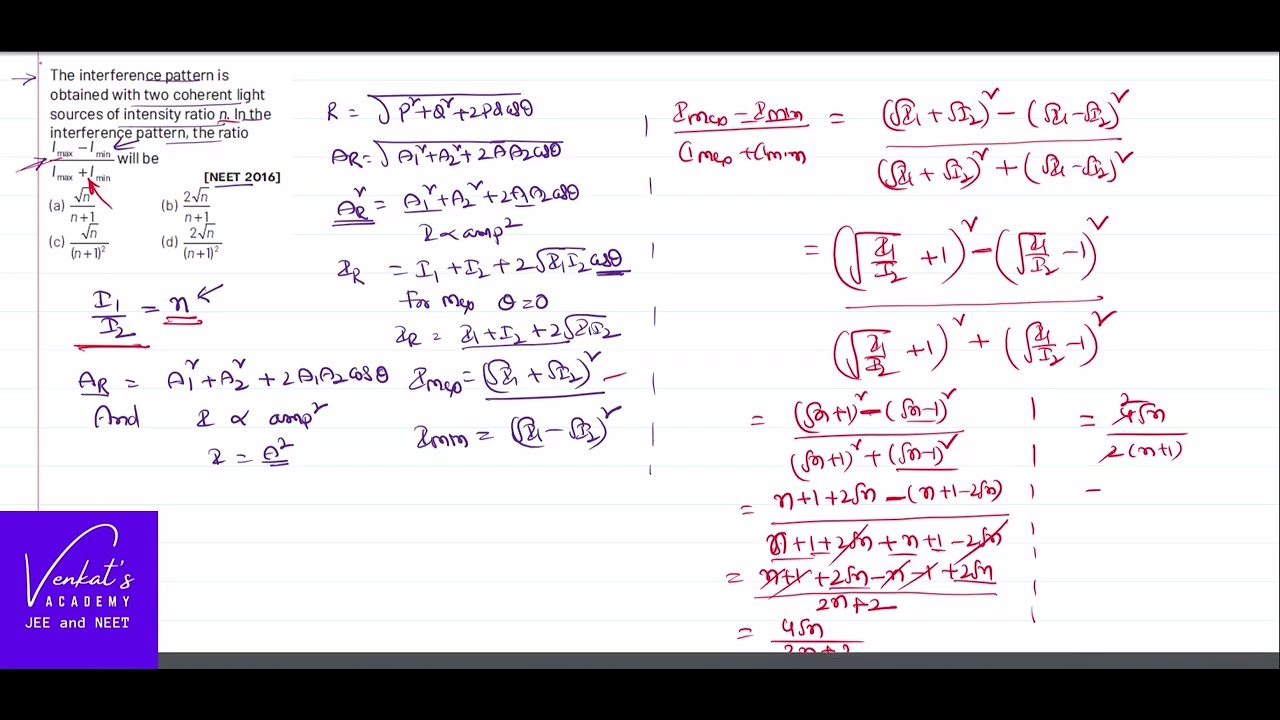 The interference pattern is
obtained with two coherent light
sources of intensity ratio n. In the
interference pattern, the ratio
I_max − I_min
I_max + I_min
will be
[NEET 2016]
(a) √n / n+1
(b) 2√n / n+1
(c) √n / (n+1)²
(d) 2√n / (n+1)²
I₁/I₂ = n
A_R = A₁² + A₂² + 2A₁A₂ cosθ
And I ∝ amp²
I = A²
R = √P²+Q²+2PQ cosθ
A_R = √A₁²+A₂²+2A₁A₂ cosθ
A_R² = A₁²+A₂²+2A₁A₂ cosθ
I ∝ amp²
I_R = I₁+I₂+2√I₁I₂ cosθ
for max θ=0
I_R = I₁+I₂+2√I₁I₂
I_max = (√I₁ + √I₂)²
I_min = (√I₁ − √I₂)²
I_max − I_min / I_max + I_min = (√I₁+√I₂)² − (√I₁−√I₂)² / (√I₁+√I₂)² + (√I₁−√I₂)²
= (√I₁/I₂ +1)² − (√I₁/I₂ −1)² / (√I₁/I₂ +1)² + (√I₁/I₂ −1)²
= (√n+1)² − (√n−1)² / (√n+1)² + (√n−1)²
= n+1+2√n − (n+1−2√n) / n+1+2√n + n+1 − 2√n
= n+1+2√n−n−1+2√n / 2n+2
= 4√n / 2n+2
= 4√n / 2(n+1)
2
=
Venkat's
ACADEMY
JEE and NEET